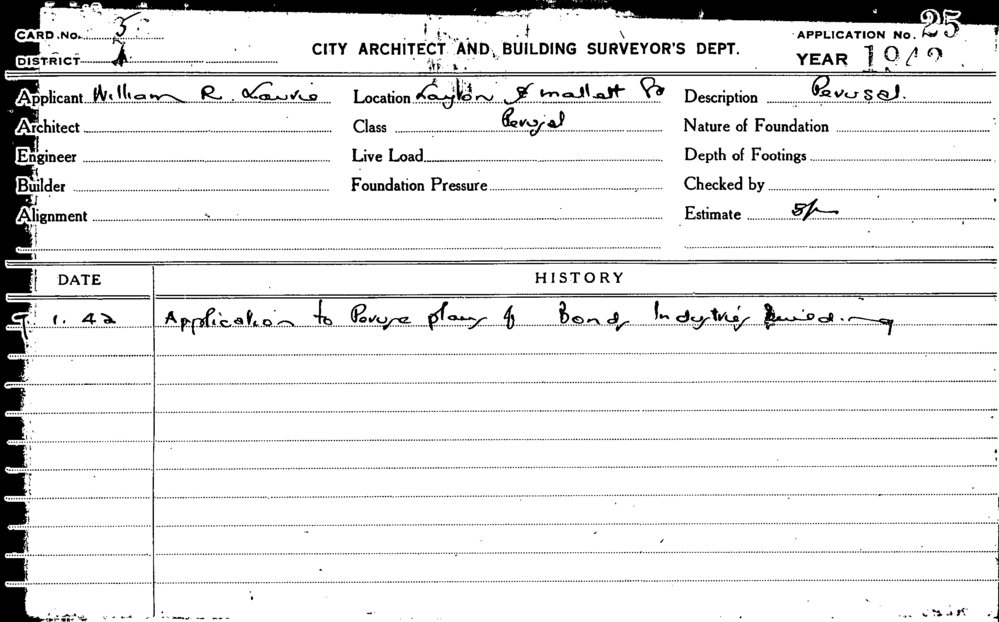 CARD No. 5
APPLICATION No. 25
DISTRICT
CITY ARCHITECT AND BUILDING SURVEYOR'S DEPT.
YEAR 1942
Applicant William R. Laurie
Location Layton & Mallett St
Description Perusal.
Architect
Class Perusal
Nature of Foundation
Engineer
Live Load
Depth of Footings
Builder
Foundation Pressure
Checked by
Alignment
Estimate 5/-
DATE
HISTORY
9 1. 42 Application to Peruse plans of Bonds Industries Building